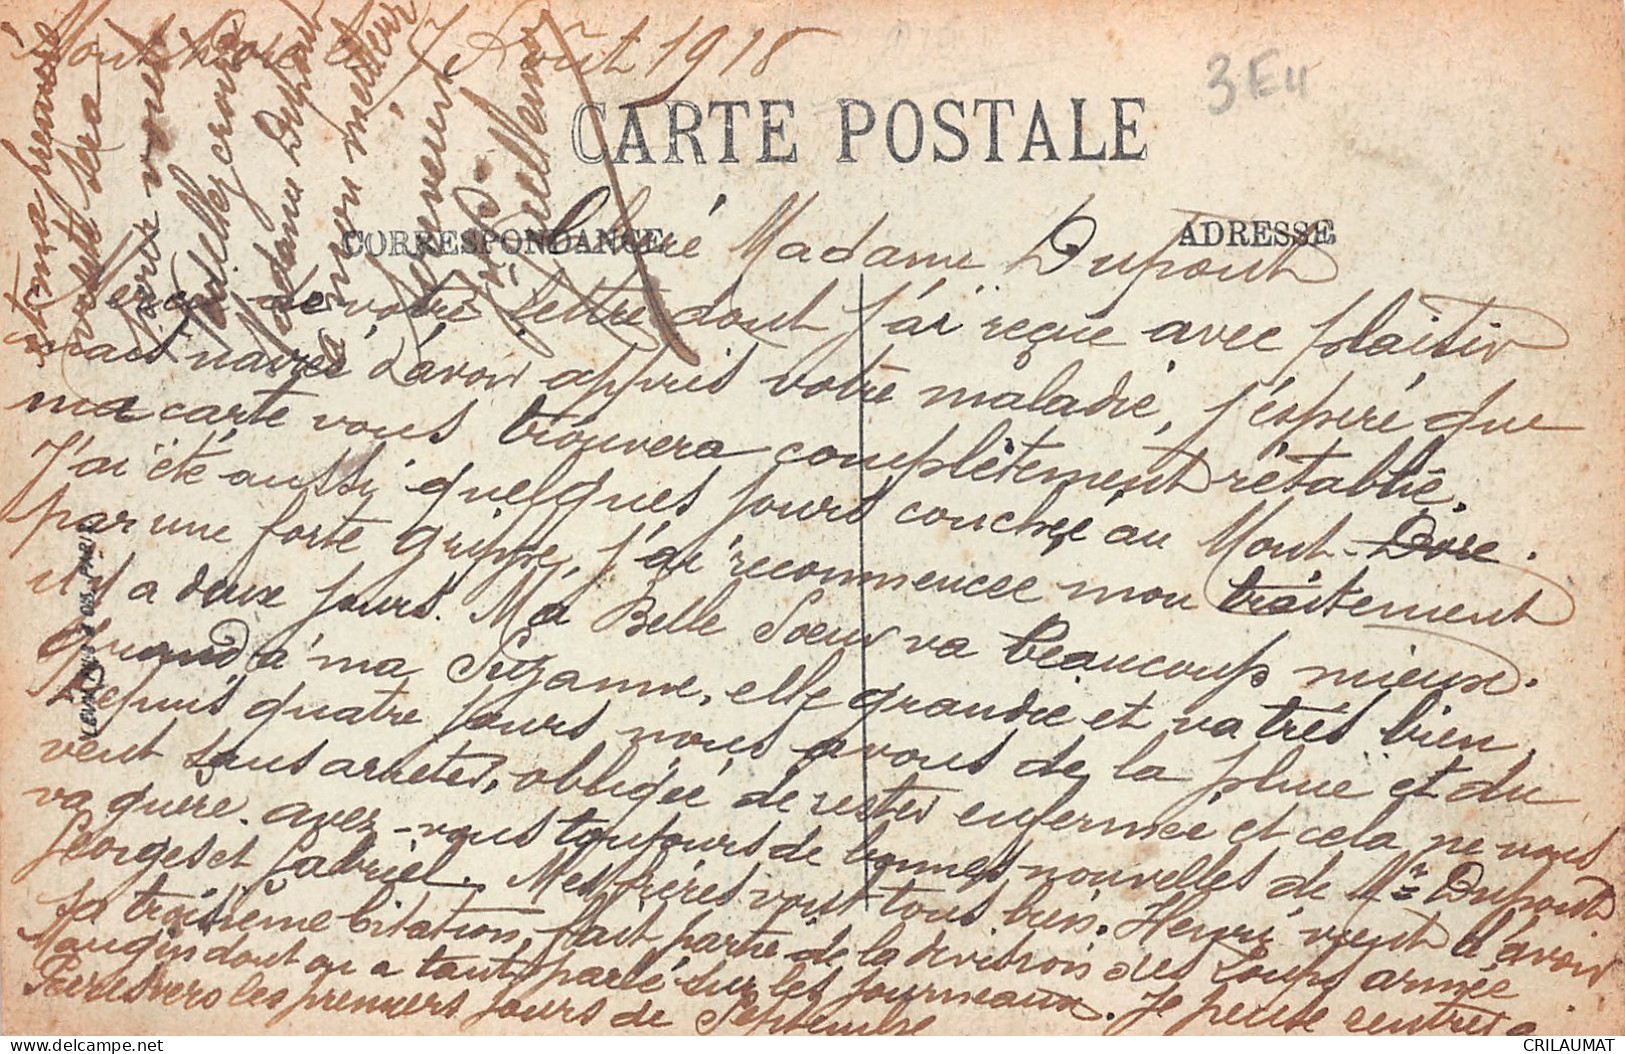 Mont Dore le 7 Août 1918
3E11
CARTE POSTALE
CORRESPONDANCE
ADRESSE
Chéré Madame Dupont
Merci de votre lettre dont j'ai reçue avec plaisir
mais navrée d'avoir appris votre maladie, j'éspére que
ma carte vous trouvera complètement rétablie.
J'ai été aussi quelques jours couchée au Mont-Dore.
par une forte grippe, j'ai recommencee mon traitement
il y a deux jours. Ma Belle Soeur va beaucoup mieux.
Quand à ma Suzanne, elle grandie et va très bien,
Depuis quatre jours nous avons de la pluie et du
vent sans arreter, obligée de rester enfermée et cela ne vous
va guère. avez-vous toujours de bonnes nouvelles de Mr Dupont
Georges et Gabriel. Mes frères vont tous bien. Henri vient d'avoir
sa troisième Citation, fait partie de la division des Loups armée
Mangin dont on a tant parlé sur les journeaux. Je pense rentrer a
Paris vers les premiers jours de Septembre
et ma premiere
visite sera
pour vous
Veuillez croire
Madame Dupont
à mon meilleur
Souvenir
LEVY FILS & CIE, PARIS
CRILAUMAT